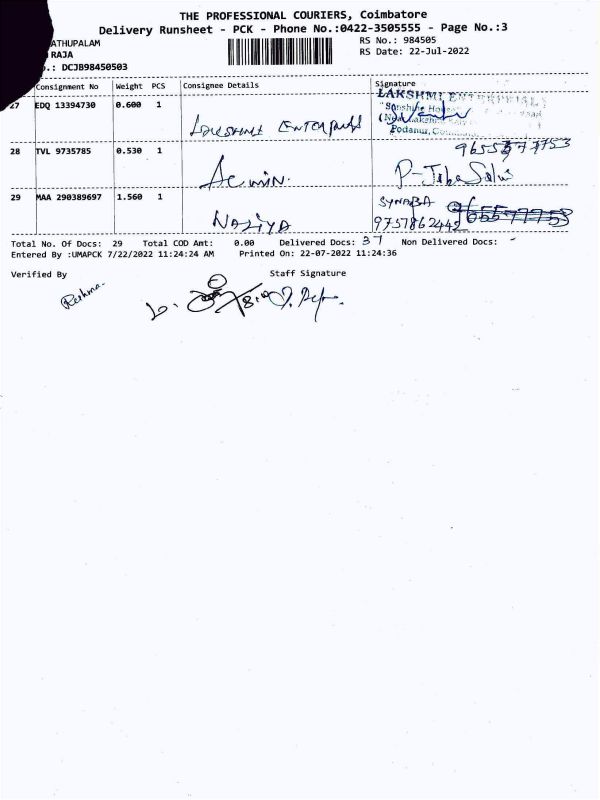 THE PROFESSIONAL COURIERS, Coimbatore
Delivery Runsheet - PCK - Phone No.:0422-3505555 - Page No.:3
ATHUPALAM
RAJA
.: DCJB98450503
RS No.: 984505
RS Date: 22-Jul-2022
Consignment No Weight PCS Consignee Details Signature
27 EDQ 13394730 0.600 1
LAKSHMI ENTERPRISES
"Sunshine House"
Podanur,
28 TVL 9735785 0.530 1
Admin.
29 MAA 290389697 1.560 1
NAZIYA
9757862442
Total No. Of Docs: 29 Total COD Amt: 0.00 Delivered Docs: 37 Non Delivered Docs: -
Entered By :UMAPCK 7/22/2022 11:24:24 AM Printed On: 22-07-2022 11:24:36
Verified By Staff Signature
Reshma.